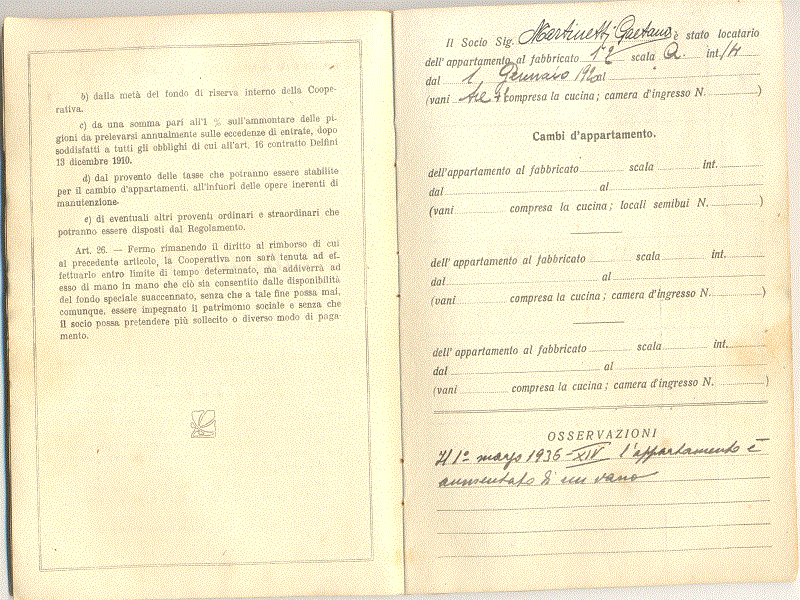 b) dalla metà del fondo di riserva interno della Coope-
rativa.
c) da una somma pari all'1 % sull'ammontare delle pi-
gioni da prelevarsi annualmente sulle eccedenze di entrate, dopo
soddisfatti a tutti gli obblighi di cui all'art. 16 contratto Delfini
13 dicembre 1910.
d) dal provento delle tasse che potranno essere stabilite
per il cambio d'appartamenti, all'infuori delle opere inerenti di
manutenzione.
e) di eventuali altri proventi ordinari e straordinari che
potranno essere disposti dal Regolamento.
Art. 26. — Fermo rimanendo il diritto al rimborso di cui
al precedente articolo, la Cooperativa non sarà tenuta ad ef-
fettuarlo entro limite di tempo determinato, ma addiverrà ad
esso di mano in mano che ciò sia consentito dalle disponibilità
del fondo speciale suaccennato, senza che a tale fine possa mai,
comunque, essere impegnato il patrimonio sociale e senza che
il socio possa pretendere più sollecito o diverso modo di paga-
mento.
Il Socio Sig. Martinetti Gaetano è stato locatario
dell'appartamento al fabbricato 1º scala A int.
dal 1 Gennaio al
(vani tre compresa la cucina; camera d'ingresso N. )
Cambi d'appartamento.
dell'appartamento al fabbricato scala int.
dal al
(vani compresa la cucina; locali semibui N. )
dell'appartamento al fabbricato scala int.
dal al
(vani compresa la cucina; camera d'ingresso N. )
dell'appartamento al fabbricato scala int.
dal al
(vani compresa la cucina; camera d'ingresso N. )
OSSERVAZIONI
Il 1º marzo 1936-XIV l'appartamento è
aumentato di un vano